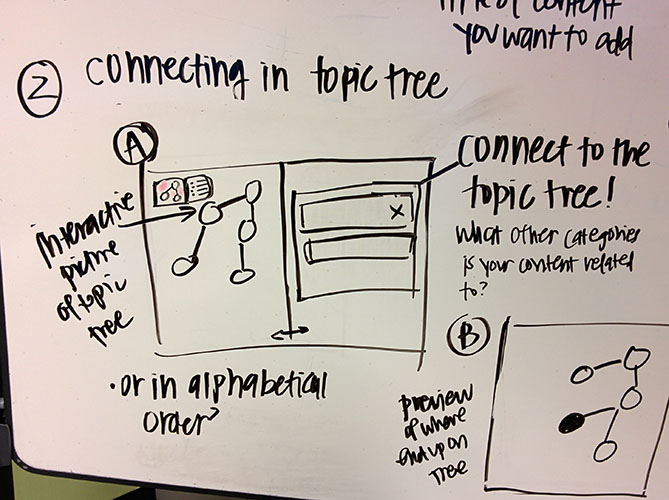 of content
you want to add
2 connecting in topic tree
A
Interactive
picture
of topic
tree
X
Connect to the
topic tree!
What other categories
is your content related
to?
• or in alphabetical
order?
B
preview
of where
end up on
tree